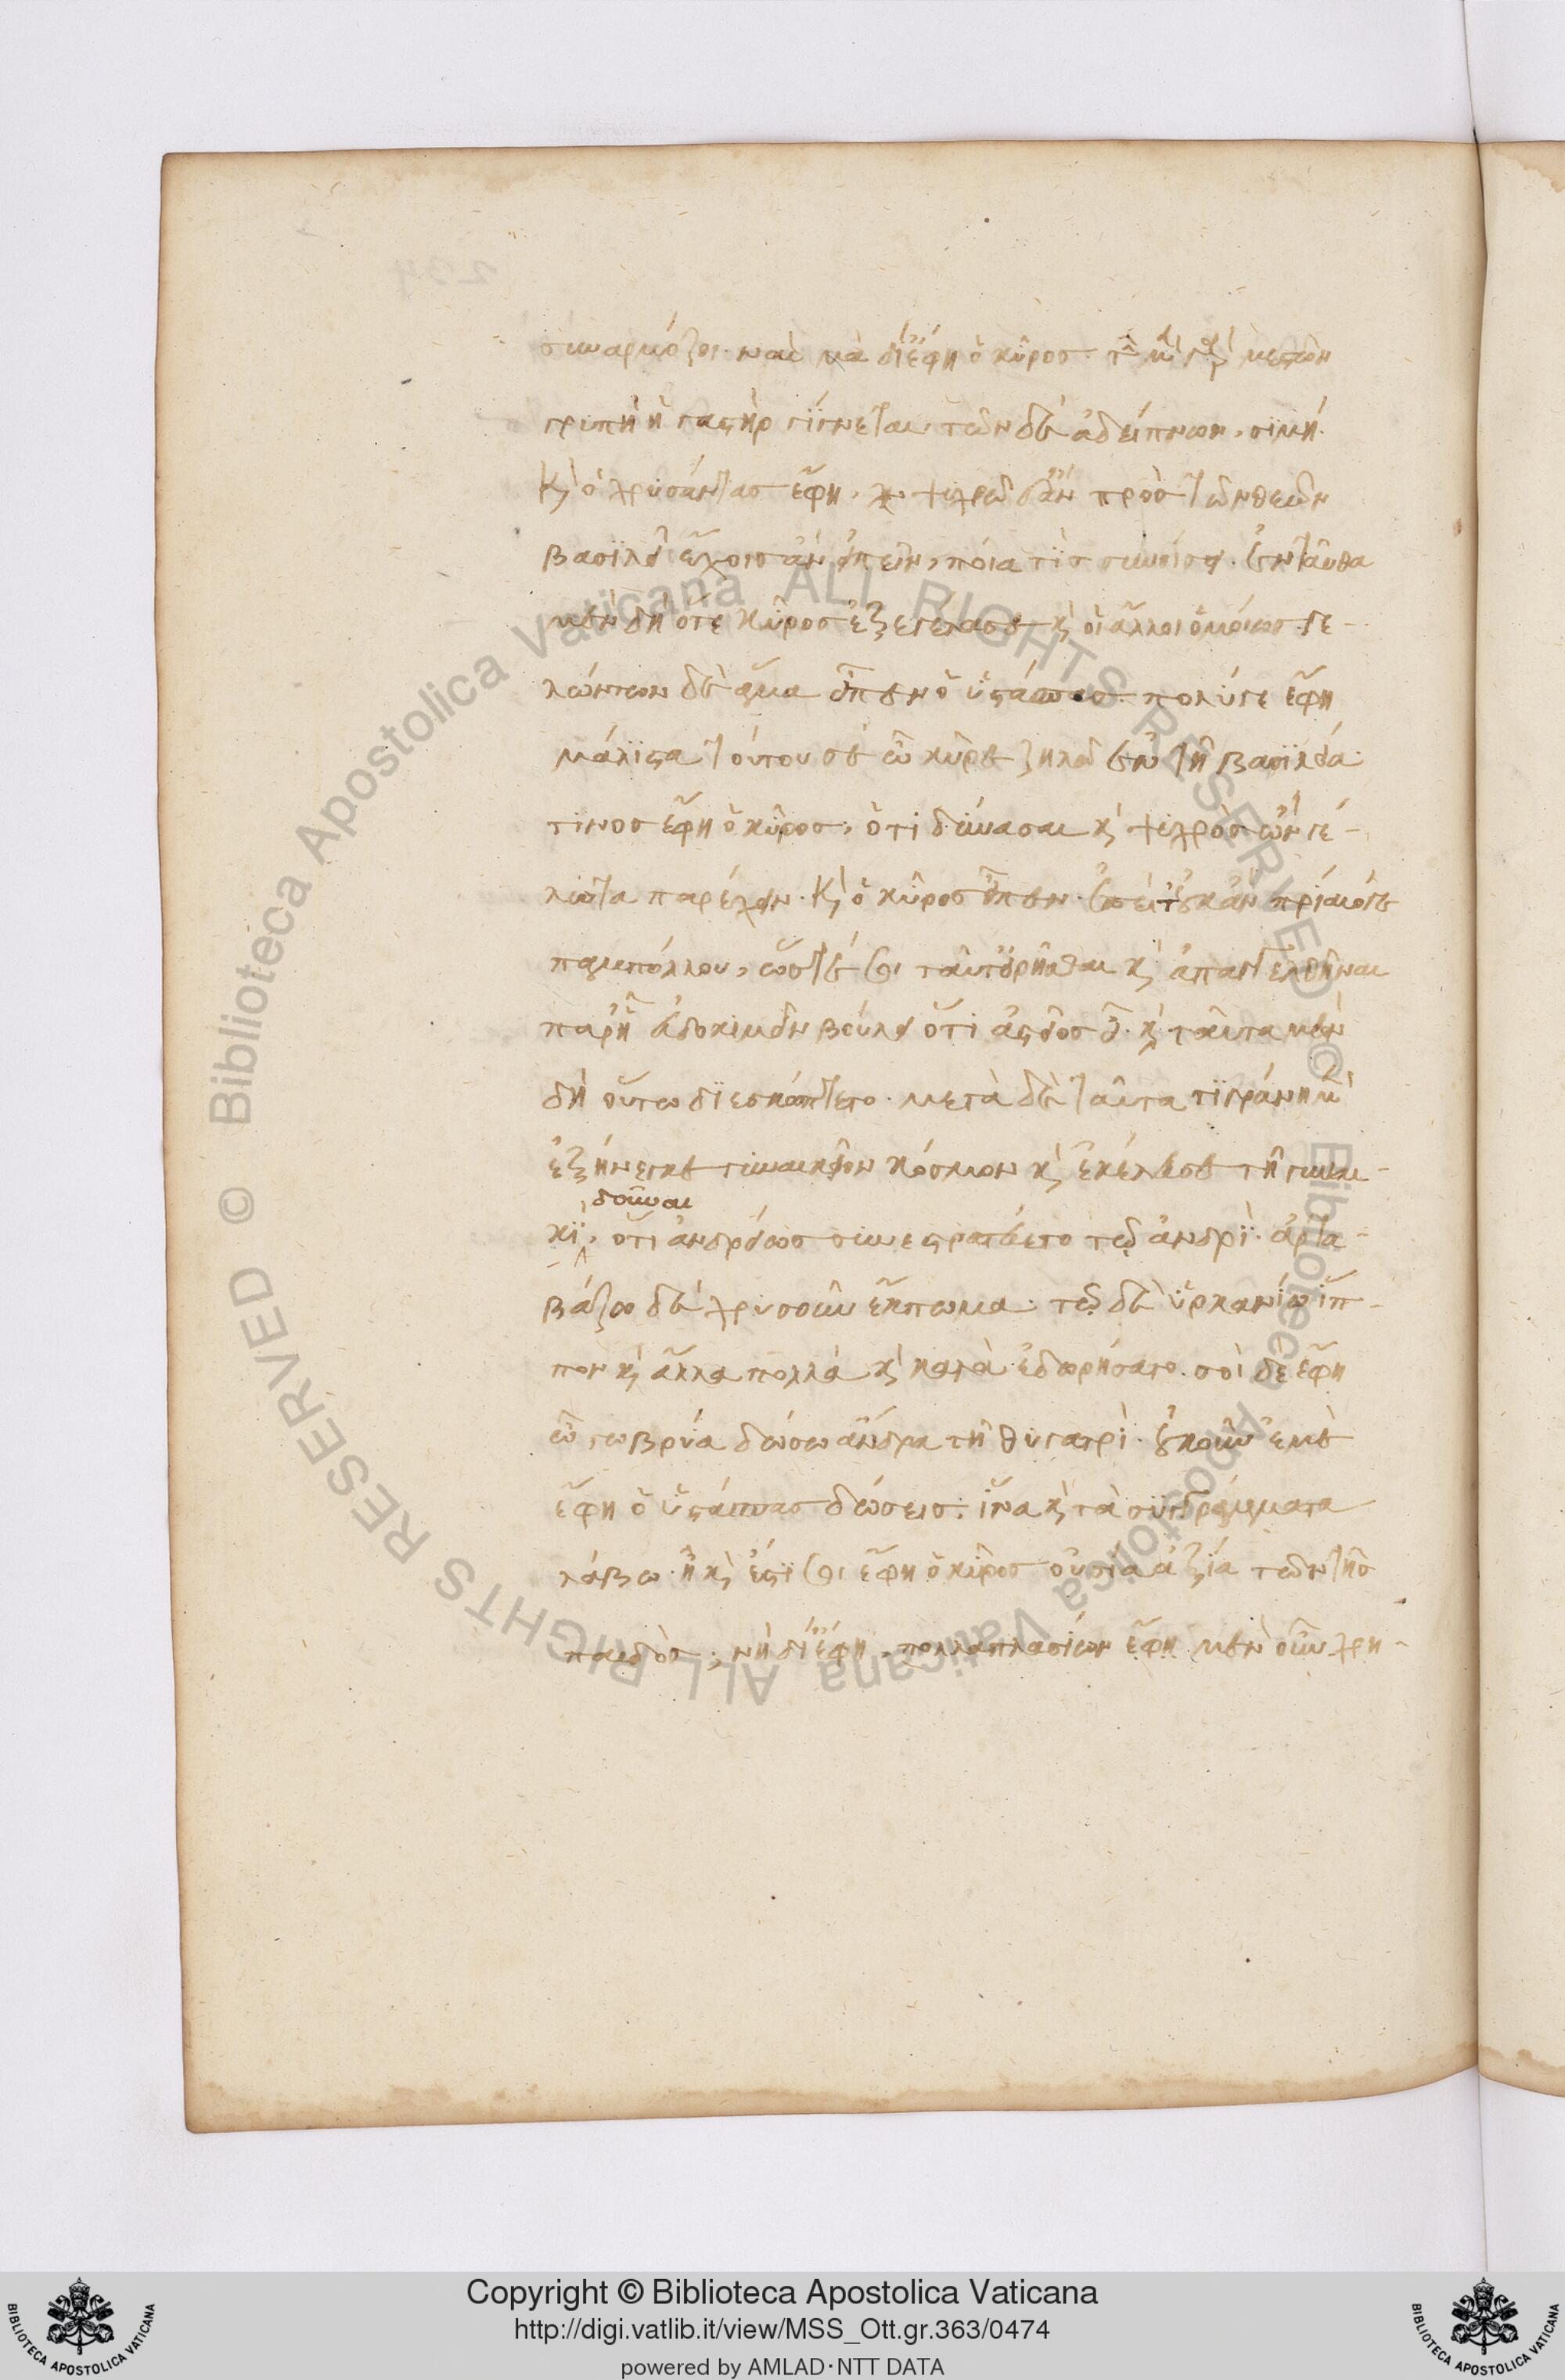 συναρμόζοι. ναὶ μὰ δί' ἔφη ὁ κῦρος· τῶν μὲν γὰρ μεστῶν
γρυπὴ ἡ γαστὴρ γίγνεται· τῶν δὲ ἀδείπνων, σιμή.
καὶ ὁ χρυσάντας ἔφη, ψυχρῶ δ' ἂν πρὸς τῶν θεῶν
βασιλεῖ ἔχοις ἂν εἰπεῖν, ποία τὶς συνοίσει. ἐνταῦθα
μὲν δὴ ὅτε κῦρος ἐξεγέλασε καὶ οἱ ἄλλοι ὁμοίως. γε-
λώντων δὲ ἅμα εἶπεν ὁ ὑστάσπας· πολύ γε ἔφη
μάλιστα τούτου σὲ ὦ κῦρε ζηλῶ ἐν τῆ βασιλεία·
τίνος ἔφη ὁ κῦρος, ὅτι δύνασαι καὶ ψυχρὸς ὢν γέ-
λωτα παρέχειν. καὶ ὁ κῦρος εἶπεν. ἔπειτ' οὐκ ἂν πρίαιό γε
παμπόλλου, ὥστέ σοι ταῦτ' εἰρῆσθαι καὶ ἀπαγγελθῆναι
παρ' ἧ εὐδοκιμεῖν βούλει ὅτι ἀστεῖος εἶ. καὶ ταῦτα μὲν
δὴ οὕτω διεσκώπτετο. μετὰ δὲ ταῦτα τιγράνη μὲν
ἐξήνεγκε γυναικεῖον κόσμον καὶ ἐκέλευσε τῆ γυναι-
κὶ δοῦναι, ὅτι ἀνδρείως συνεστρατεύετο τῷ ἀνδρί. ἀρτα-
βάζω δὲ χρυσοῦν ἔκπωμα· τῷ δὲ ὑρκανίω ἵπ-
πον καὶ ἄλλα πολλὰ καὶ καλὰ ἐδωρήσατο. σοὶ δὲ ἔφη
ὦ γωβρύα δώσω ἄνδρα τῆ θυγατρί. οὐκοῦν ἐμὲ
ἔφη ὁ ὑστάσπας δώσεις. ἵνα καὶ τὰ συγγράμματα
λάβω. ἦ καὶ ἔστι σοι ἔφη ὁ κῦρος οὐσία ἀξία τῶν τῆς
παιδός; νὴ δί' ἔφη, πολλαπλασίων ἔφη μὲν οὖν χρη-
Copyright © Biblioteca Apostolica Vaticana
http://digi.vatlib.it/view/MSS_Ott.gr.363/0474
powered by AMLAD·NTT DATA
BIBLIOTECA APOSTOLICA VATICANA
BIBLIOTECA APOSTOLICA VATICANA
© Biblioteca Apostolica Vaticana ALL RIGHTS RESERVED
© Biblioteca Apostolica Vaticana ALL RIGHTS RESERVED